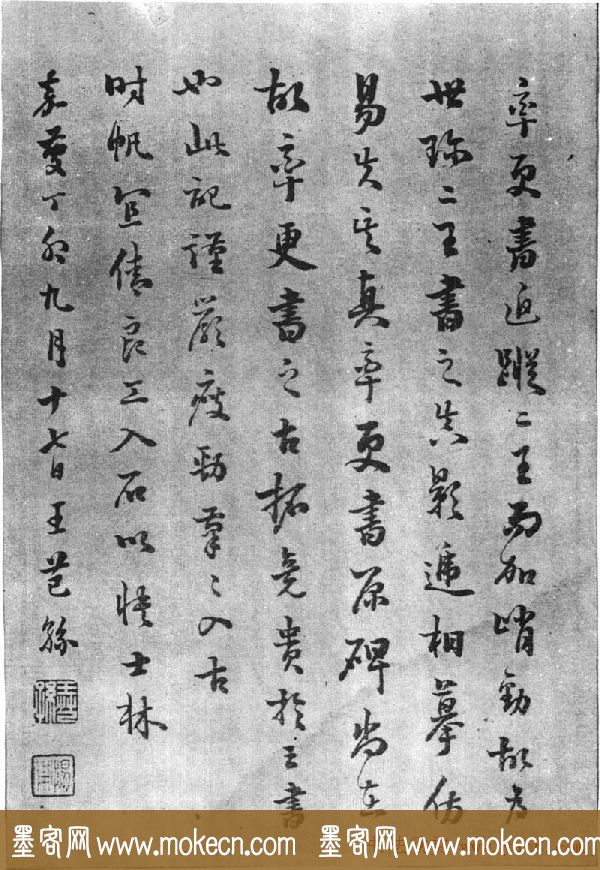 率更書近蹤二王而加峭勁故為
世珍二王書之影遞相摹仿
易失其真率更書原碑尚在
故率更書之古拓竟貴於王書
如此記謹嚴瘦勁筆〻入古
时帆宜倩良工入石以士林
嘉慶丁卯九月十七日王芑孫
墨客网 www.mokecn.com 墨客网 www.mokecn.com